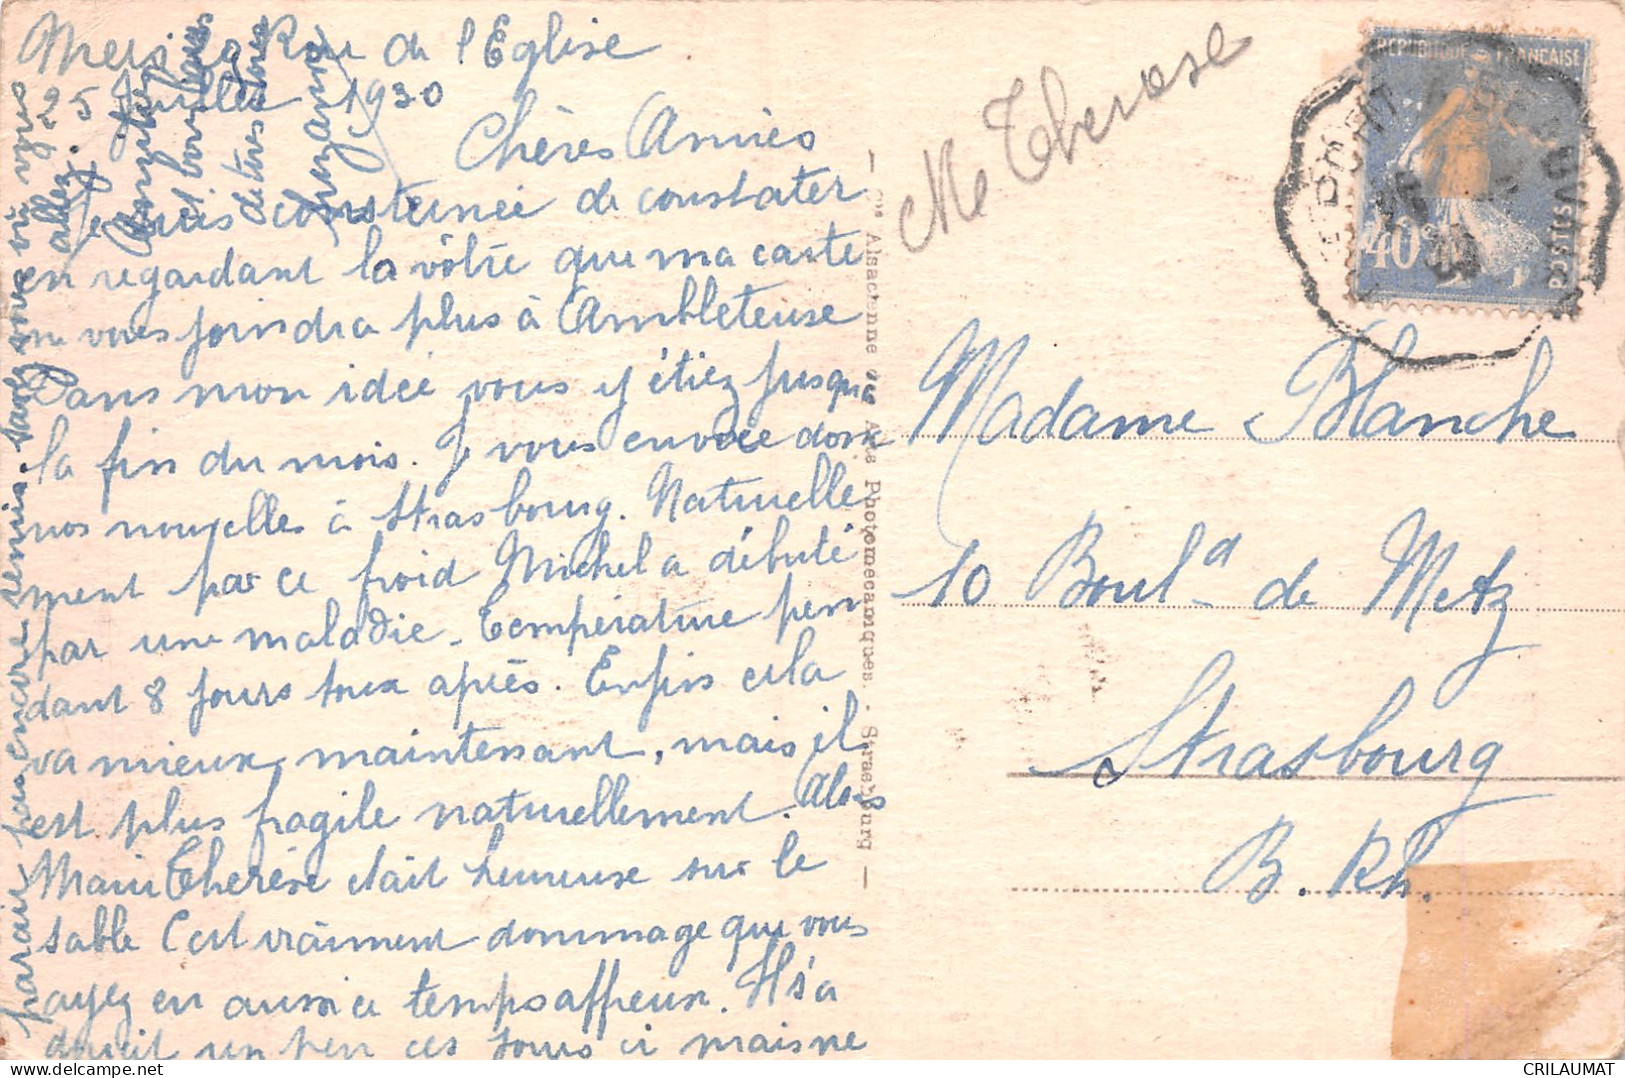 Mers 19 Rue de l'Eglise
25 Juillet 1930
Chères Amies
Je suis consternée de constater
en regardant la vôtre que ma carte
ne vous joindra plus à Ambleteuse
Dans mon idée vous y étiez jusque
la fin du mois. Je vous envoie donc
nos nouvelles à Strasbourg. Naturelle
ment par ce froid Michel a débuté
par une maladie. Température pen
dant 8 jours toux après. Enfin cela
va mieux maintenant, mais il
est plus fragile naturellement. Alors
Marie Thérèse était heureuse sur le
sable C'est vraiment dommage que vous
ayez eu aussi ce temps affreux. Il s'a
doucit un peu ces jours ci mais ne
parait pas encore remis. sable vous où vous
allez.
bons baisers
de tres
Suzanne
Cie Alsacienne des Arts Photomécaniques. - Strasbourg
Mle Therese
REPUBLIQUE FRANÇAISE
40c
POSTES
Madame Blanche
10 Boul.d de Metz
Strasbourg
B. Rh.
CRILAUMAT